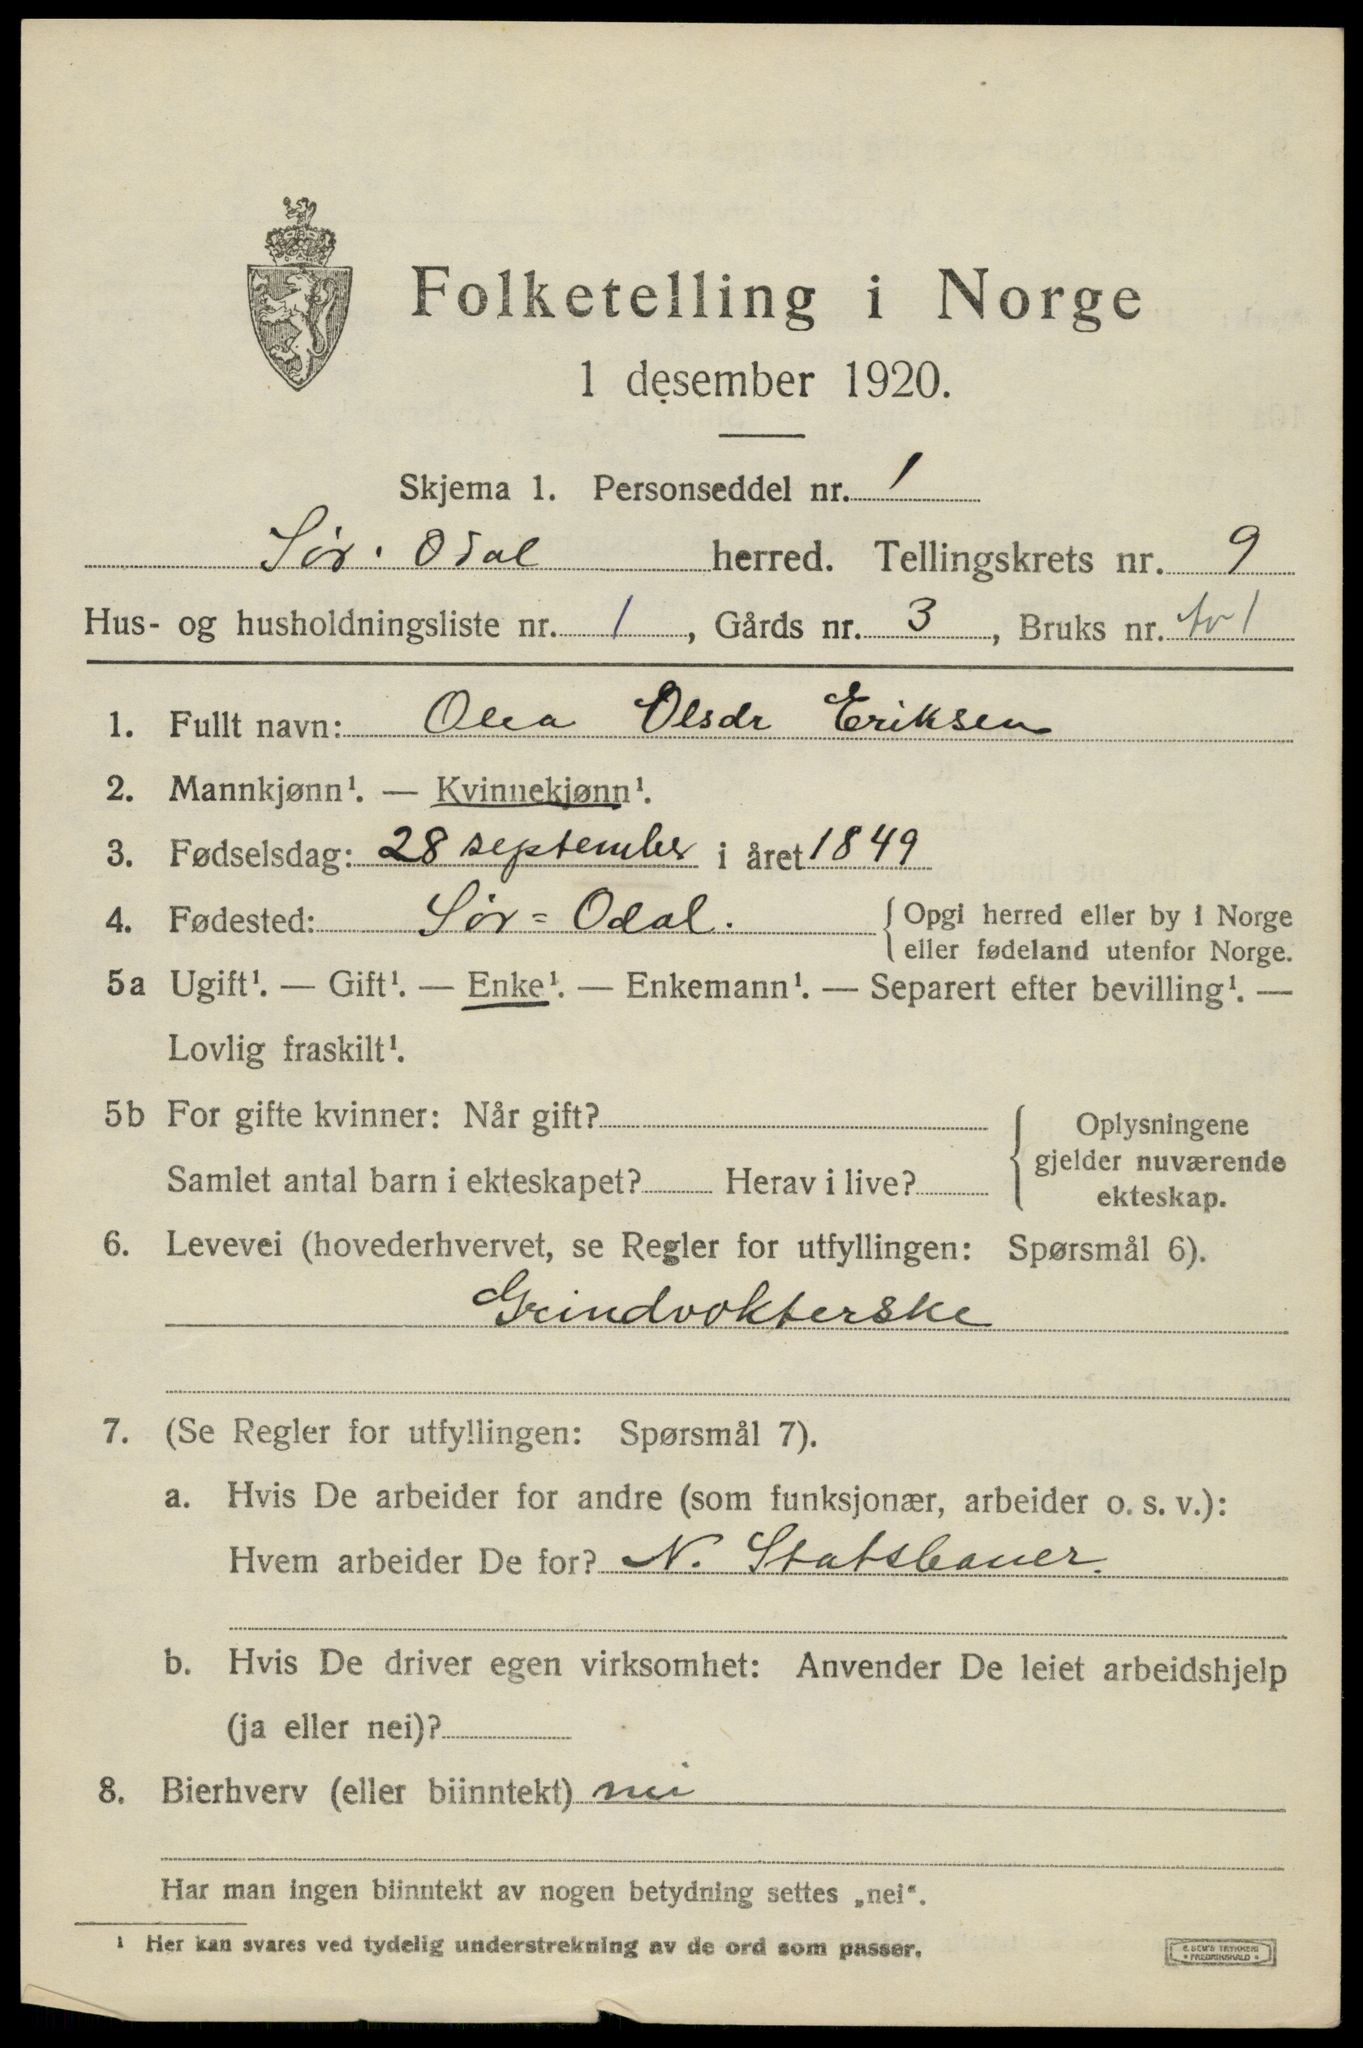 Folketelling i Norge
1 desember 1920.
Skjema 1. Personseddel nr. 1
Sør-Odal herred. Tellingskrets nr. 9
Hus- og husholdningsliste nr. 1, Gårds nr. 3, Bruks nr. av 1
1. Fullt navn: Olea Olsdr Eriksen
2. Mannkjønn¹. — Kvinnekjønn¹.
3. Fødselsdag: 28 september i året 1849
4. Fødested: Sør=Odal. { Opgi herred eller by i Norge
eller fødeland utenfor Norge.
5a Ugift¹. — Gift¹. — Enke¹. — Enkemann¹. — Separert efter bevilling¹. —
Lovlig fraskilt¹.
5b For gifte kvinner: Når gift?
Samlet antal barn i ekteskapet? Herav i live?
{ Oplysningene
gjelder nuværende
ekteskap.
6. Levevei (hovederhvervet, se Regler for utfyllingen: Spørsmål 6).
Grindvokterske
7. (Se Regler for utfyllingen: Spørsmål 7).
a. Hvis De arbeider for andre (som funksjonær, arbeider o. s. v.):
Hvem arbeider De for? N. Statsbaner.
b. Hvis De driver egen virksomhet: Anvender De leiet arbeidshjelp
(ja eller nei)?
8. Bierhverv (eller biinntekt) nei
Har man ingen biinntekt av nogen betydning settes „nei“.
¹ Her kan svares ved tydelig understrekning av de ord som passer.
E. SEM'S TRYKKERI
FREDRIKSHALD